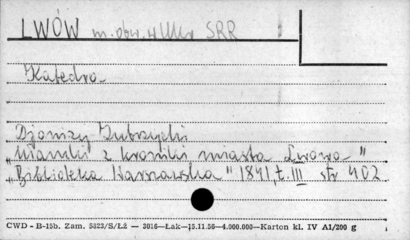 LWÓW m. obw. w Ukr SRR
Katedra
Djonizy Zubrzycki
"Wianki z kroniki miasta Lwowa"
"Biblioteka Warszawska" 1841, t. III str 402
CWD - B-15b. Zam. 5823/S/Łż — 3016—Łak—15.11.56—4.000.000—Karton kl. IV A1/200 g